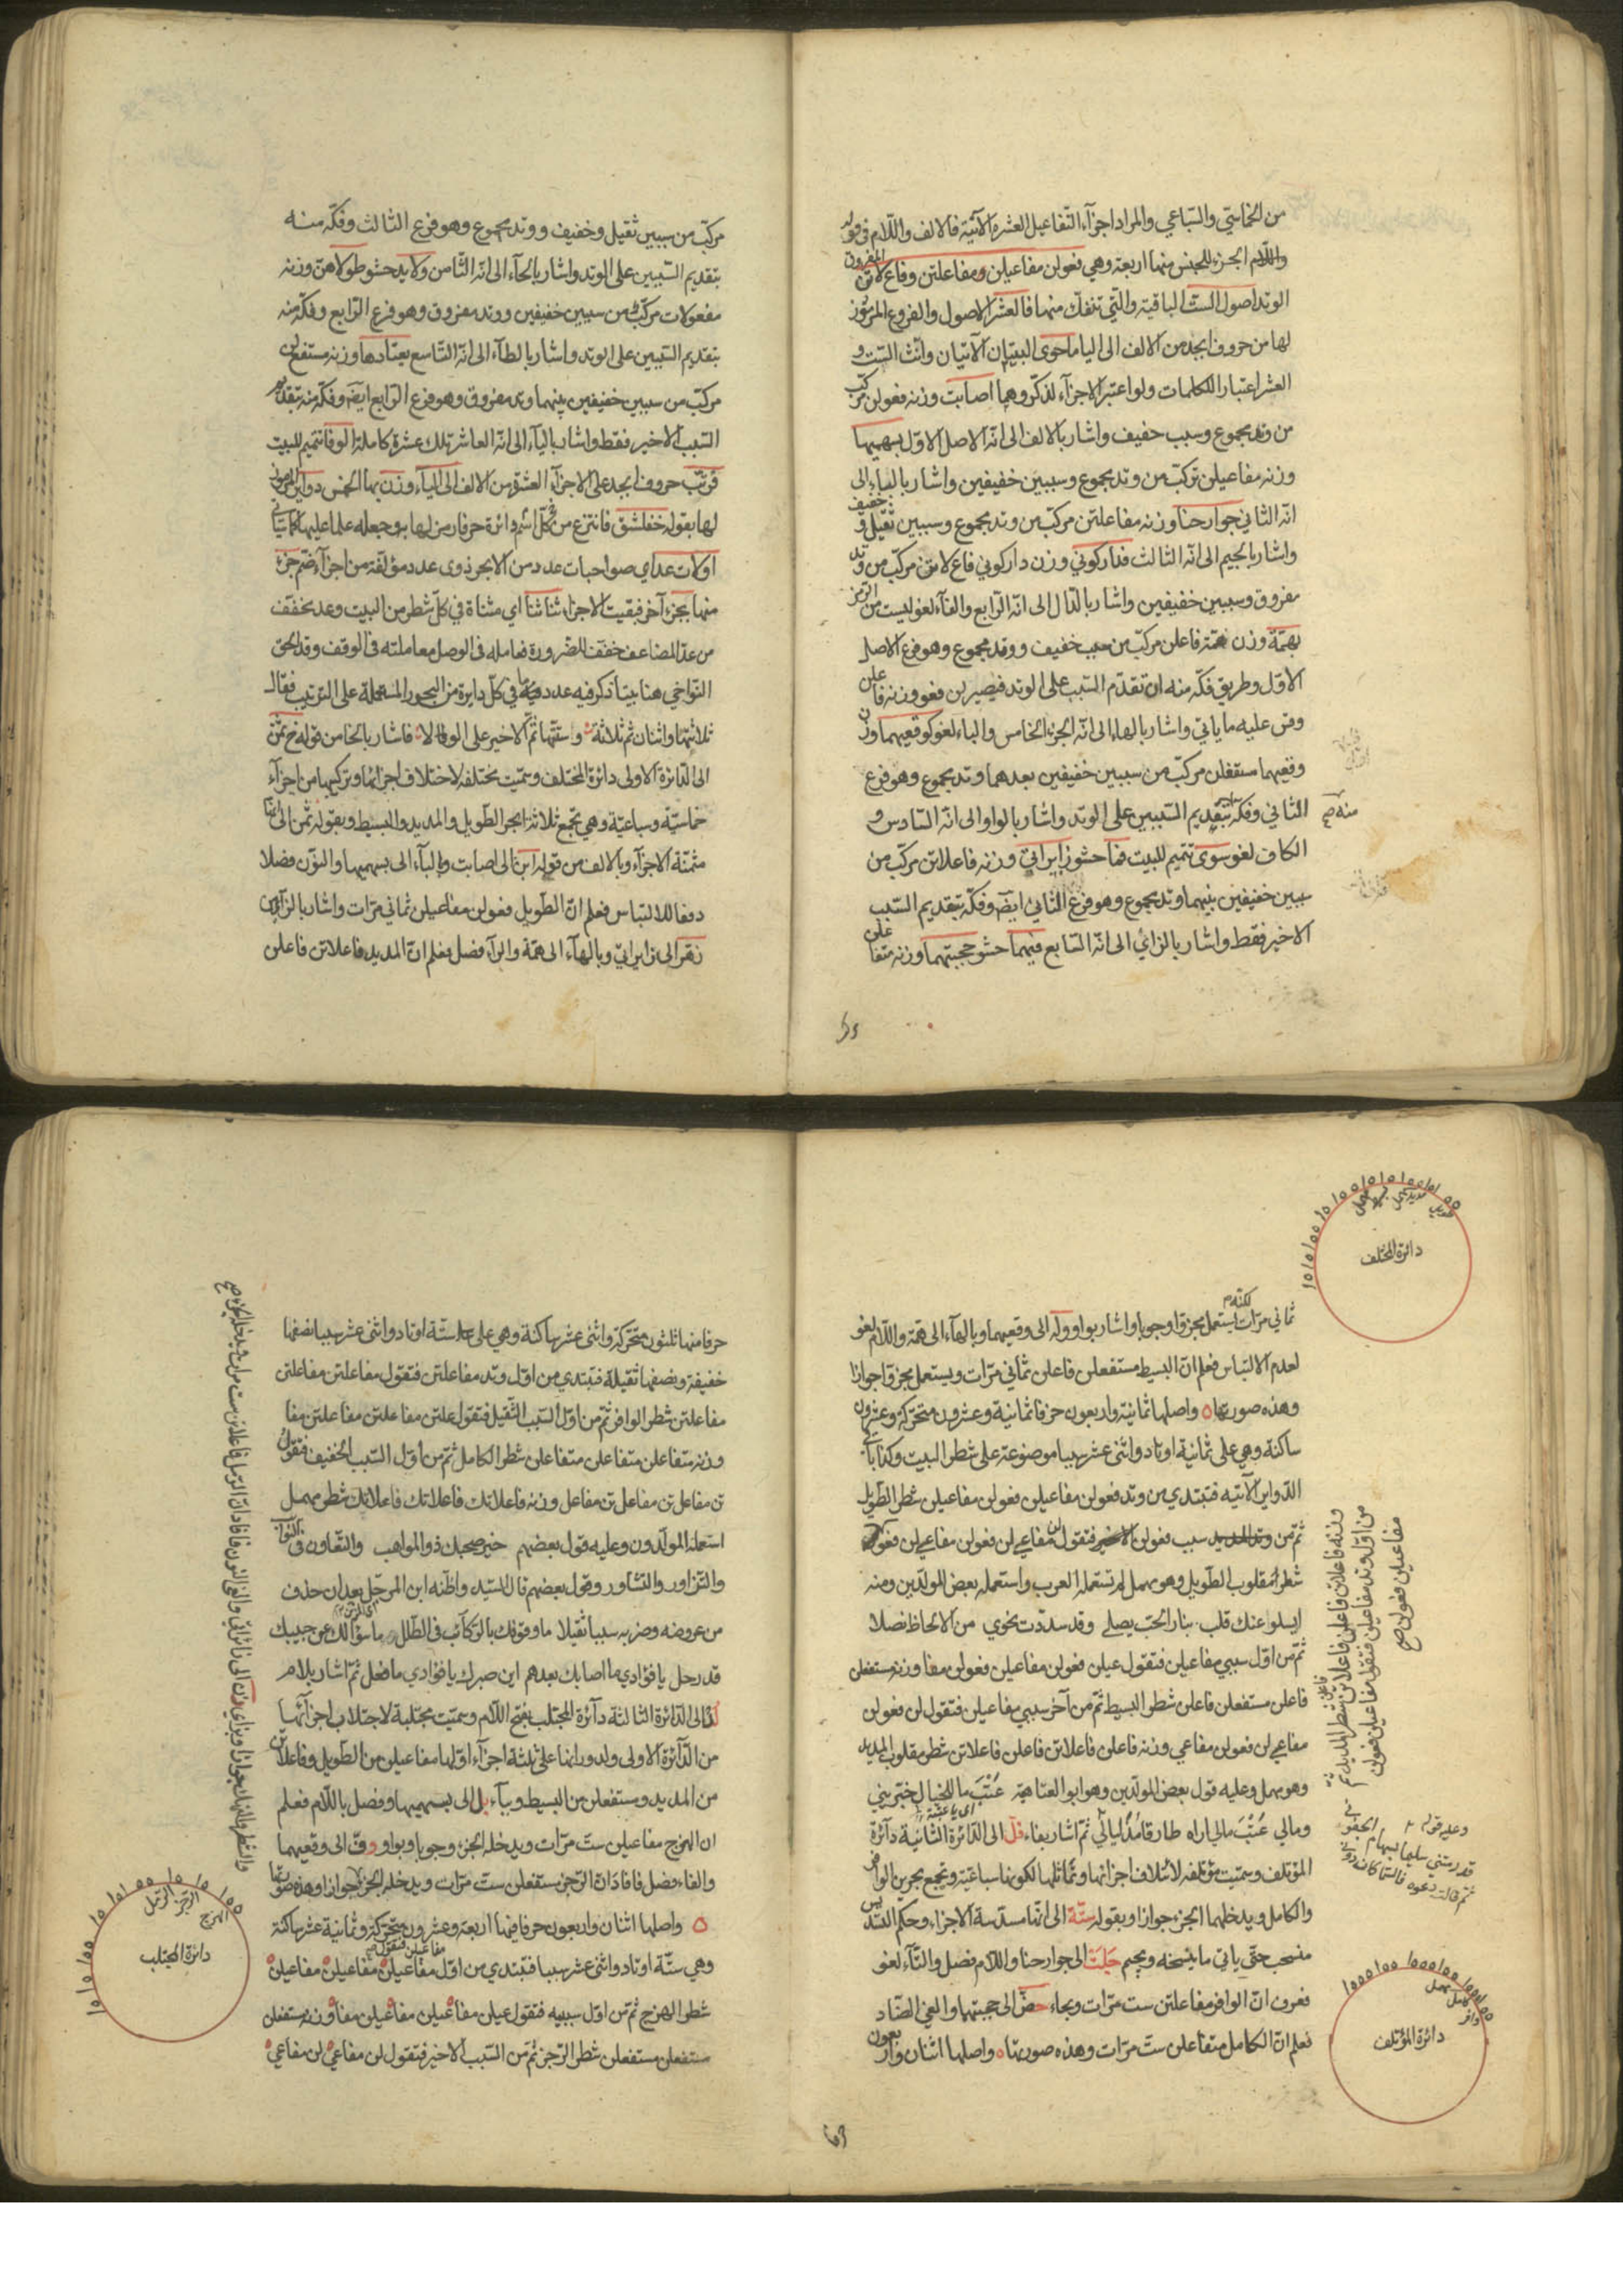 من الخماسي والسباعي والمراد اجزآء التفاعيل العشرة الآتية فالالف واللام في قوله
واللام الجزء للجنس منها اربعة وهي فعولن مفاعيلن ومفاعلتن وفاع لاتن المفروق
الوتد اصول الست الباقية والتي تنفك منها فالعشر الاصول والفروع المرموز
لها من حروف ابجد من الالف الى اليا ما حوى البيتان الآتيان وانث الست و
العشر اعتبارا للكلمات ولو اعتبر الاجزآء لذكر وهما اصابت وزنه فعولن مركب
من وتد مجموع وسبب خفيف واشار بالالف الى انه الاصل الاول بسهميها
وزنه مفاعيلن تركب من وتد مجموع وسببين خفيفين واشار بالباء الى
انه الثاني جوارحنا وزنه مفاعلتن مركب من وتد مجموع وسببين ثقيل و خفيف
واشار بالجيم الى انه الثالث فداركوني وزن داركوني فاع لاتن مركب من وتد
مفروق وسببين خفيفين واشار بالدال الى انه الرابع والفآء لغو ليست من الرمز
بهمة وزن همة فاعلن مركب من سبب خفيف ووتد مجموع وهو فرع الاصل
الاول وطريق فكه منه ان تقدم السبب على الوتد فيصير لن فعو وزنه فاعلن
وقس عليه ما ياتي واشار بالهاء الى انه الجزء الخامس والباء لغو كوقعيهما وزن
وقعيهما مستفعلن مركب من سببين خفيفين بعدهما وتد مجموع وهو فرع
الثاني وفكه بتقديم السببين على الوتد واشار بالواو الى انه السادس و
منه صح
الكاف لغو سوى تتميم للبيت فما حشو زايراتي وزنه فاعلاتن مركب من
سببين خفيفين بينهما وتد مجموع وهو فرع الثاني ايضا وفكه بتقديم السبب
الاخير فقط واشار بالزاي الى انه السابع فيهما حشو حجبتهما وزنه متفاعلن
مركب من سببين ثقيل وخفيف ووتد مجموع وهو فرع الثالث وفكه منه
بتقديم السببين على الوتد واشار بالحآء الى انه الثامن ولا يد حشو طولاهن وزنه
مفعولات مركب من سببين خفيفين ووتد مفروق وهو فرع الرابع وفكه منه
بتقديم السببين على الوتد واشار بالطآء الى انه التاسع يعتادها وزنه مستفع لن
مركب من سببين خفيفين بينهما وتد مفروق وهو فرع الرابع ايضا وفكه منه بتقديم
السبب الاخير فقط واشار باليآء الى انه العاشر تلك عشرة كاملة الوفا تتميم للبيت
فرتب حروف ابجد على الاجزآء العشرة من الالف الى اليآء وزن بها الخمس دواير المرموز
لها بقوله خفلشق فانتزع من كل اسم دائرة حرفا رمز لها به وجعله علما عليها كما سيأتي
اولات عد اي صواحبات عدد من الابحر ذوى عدد مؤلفة من اجزآء ضم جزء
منها بجزء آخر فبقيت الاجزاء ثنا ثنا اي مثناة في كل شطر من البيت وعد مخفف
من عد المضاعف خفف للضرورة فعامله في الوصل معاملته في الوقف وقد الحق
النواخي هنا بيتا ذكر فيه عدد ما في كل دايرة من البحور المستعملة على الترتيب فقال
ثلاثتها واثنان ثم ثلاثة وستتها ثم الاخير على الولا فاشار بالخا من قوله خ ثمن
الى الدائرة الاولى دائرة المختلف وسميت مختلفة لاختلاف اجزائها وتركيبها من اجزآء
خماسية وسباعية وهي تجمع ثلاثة ابحر الطويل والمديد والبسيط وبقوله ثمن الى انها
مثمنة الاجزآء وبالالف من قوله ابن الى اصابت والبآء الى بسهميها والنون فضلا
دفعا للالتباس فعلم ان الطويل فعولن مفاعيلن ثماني مرات واشار بالزآي من
زهر الى زايراتي وبالهآء الى همة والرآء فضل فعلم ان المديد فاعلاتن فاعلن
دائرة المختلف
ثماني مرات لكنه يستعمل مجزوا وجوبا واشار بواو وله الى وقعيهما وبالهآء الى همة واللام لغو
لعدم الالتباس فعلم ان البسيط مستفعلن فاعلن ثماني مرات ويستعمل مجزوا جوازا
وهذه صورتها واصلها ثمانية واربعون حرفا ثمانية وعشرون متحركة وعشرون
ساكنة وهي على ثمانية اوتاد واثنى عشر سببا موضوعة على شطر البيت وكذا باقي
الدواير الآتية فتبتدي من وتد فعولن مفاعيلن فعولن مفاعيلن شطر الطويل
ثم من سبب فعولن فتقول لن مفاعي لن فعولن مفاعي لن فعو
شطر المقلوب الطويل وهو مهمل لم تستعمله العرب واستعمله بعض المولدين ومنه
ايسلو عنك قلب بنار الحب يصلى وقد سددت نحوي من الالحاظ نصلا
ثم من اول سببي مفاعيلن فتقول عيلن فعولن مفاعيلن فعولن مفا وزنه مستفعلن
فاعلن مستفعلن فاعلن شطر البسيط ثم من آخر سببي مفاعيلن فتقول لن فعولن
مفاعي لن فعولن مفاعي وزنه فاعلن فاعلاتن فاعلن فاعلاتن شطر مقلوب المديد
وهو مهمل وعليه قول بعض المولدين وهو ابو العتاهية عتب ما للخيال خبريني
ومالي عتب مالي اراه طارقا مذ ليالي ثم اشار بفاء فل الى الدائرة الثانية دآئرة
اي يا عتبة
المؤتلف وسميت مؤتلفة لائتلاف اجزائها وتماثلها لكونها سباعية وتجمع بحرين الوافر
والكامل ويدخلهما الجزء جوازا وبقوله ستة الى انها مسدسة الاجزاء وحكم التسديس
منسحب حتى ياتي ما ينسخه وبجيم جلت الى جوارحنا واللام فصل والتآء لغو
فعرف ان الوافر مفاعلتن ست مرات وبحاء حض الى حجبتهما والغي الضاد
فعلم ان الكامل متفاعلن ست مرات وهذه صورتها واصلها اثنان واربعون
من اول وتد مفاعيلن فتقول مفاعيلن فعولن
مفاعيلن فعولن صح
دائرة المؤتلف
حرفا منها ثلثون متحركة واثنى عشر ساكنة وهي على ستة اوتاد واثنى عشر سببا نصفها
خفيفة ونصفها ثقيلة فتبتدي من اول وتد مفاعلتن فتقول مفاعلتن مفاعلتن
مفاعلتن شطر الوافر ثم من اول السبب الثقيل فتقول علتن مفاعلتن مفاعلتن مفا
وزنه متفاعلن متفاعلن متفاعلن شطر الكامل ثم من اول السبب الخفيف فتقول
تن مفاعل تن مفاعل تن مفاعل وزنه فاعلاتك فاعلاتك فاعلاتك شطر مهمل
استعمله المولدون وعليه قول بعضهم خير صحبك ذو المواهب والتعاون في النوائب
والتزاور والتشاور وقول بعضهم قال السيد واظنه ابن المرحل بعد ان حذف
من عروضه وضربه سببا ثقيلا ما وقوفك بالركائب في الطلل ما سؤالك عن حبيبك
قد رحل يا فؤادي ما اصابك بعدهم اين صبرك يا فؤادي ما فعل ثم اشار بلام
لذ الى الدائرة الثالثة دآئرة المجتلب بفتح اللام وسميت مجتلبة لاجتلاب اجزآئها
من الدآئرة الاولى ولدورانها على ثلثة اجزآء اولها مفاعيلن من الطويل وفاعلاتن
من المديد ومستفعلن من البسيط وببآء بل الى بسهميها وفصل باللام فعلم
ان الهزج مفاعيلن ست مرات ويدخله الجزء وجوبا وبواو وف الى وقعيهما
والفاء فضل فافاد ان الرجز مستفعلن ست مرات ويدخله الجزء جوازا وهذه صورتها
واصلها اثنان واربعون حرفا فيها اربعة وعشرون متحركة وثمانية عشر ساكنة
وهي ستة اوتاد واثنى عشر سببا فتبتدي من اول مفاعيلن فتقول مفاعيلن مفاعيلن مفاعيلن
شطر الهزج ثم من اول سببيه فتقول عيلن مفاعيلن مفاعيلن مفا وزنه مستفعلن
مستفعلن مستفعلن شطر الرجز ثم من السبب الاخير فتقول لن مفاعي لن مفاعي
دائرة المجتلب
الهزج الرجز الرمل